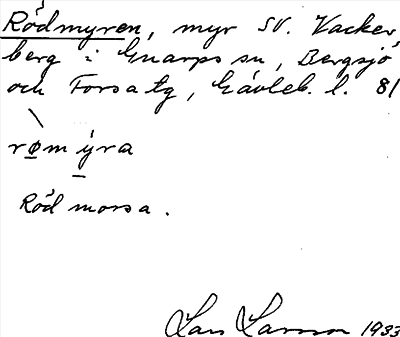 Rödmyren, myr SV. Vacker,
berg i Gnarps sn, Bergsjö
och Forsa tg, Gävleb. l. 81
rø̀mýra
Röd mossa.
Lars Larsson 1933